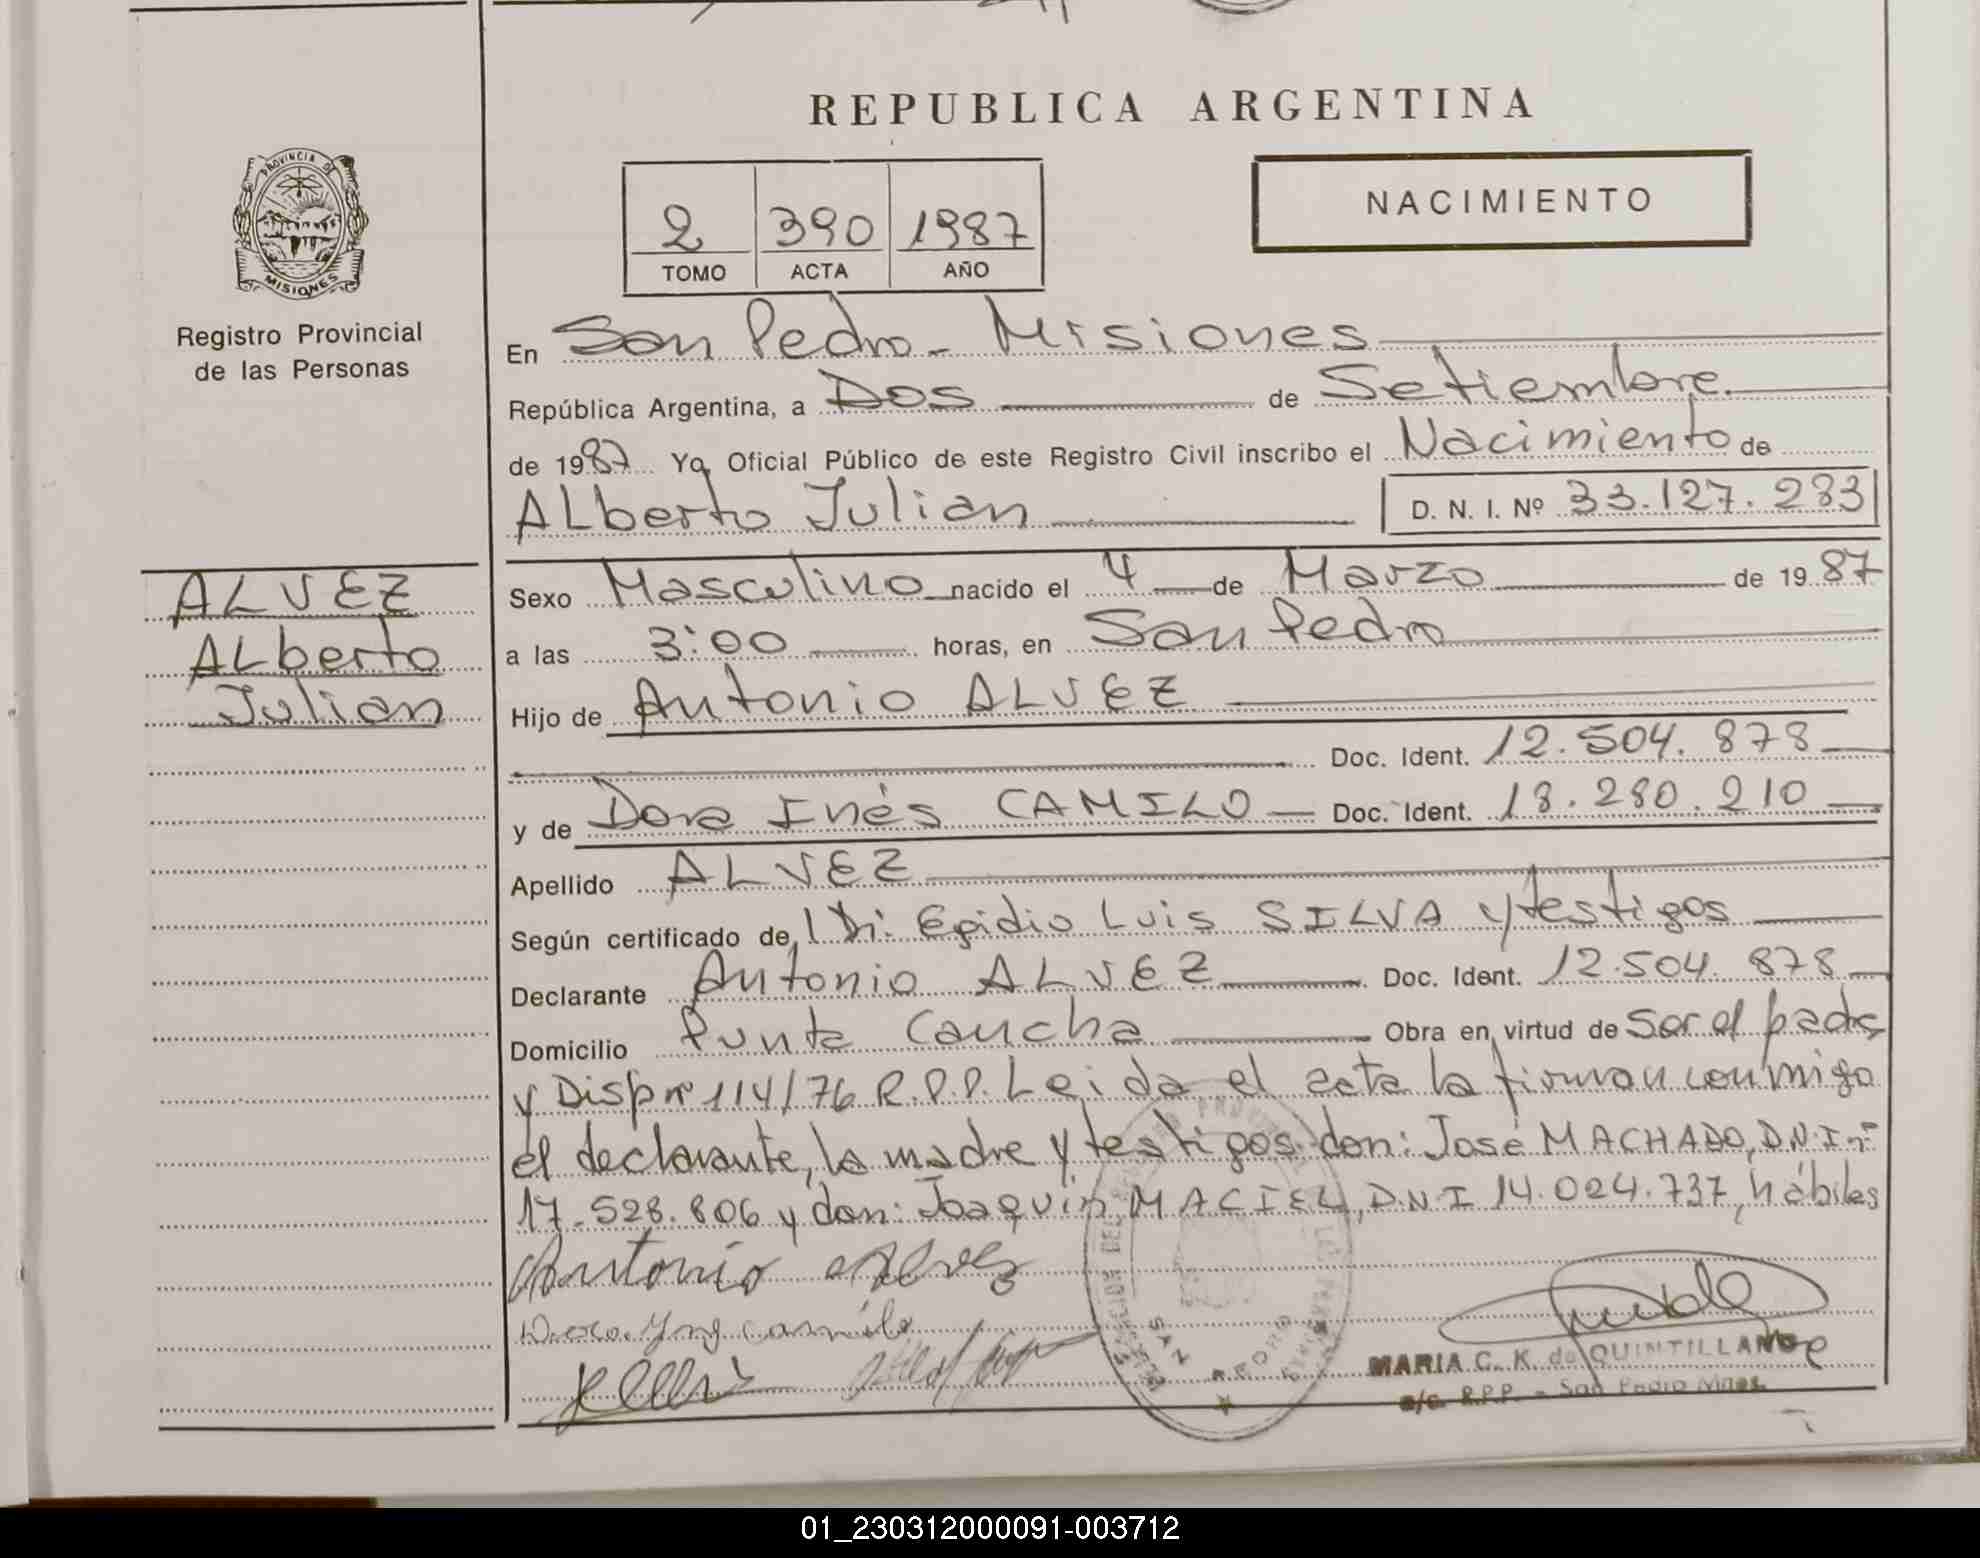 REPUBLICA ARGENTINA
PROVINCIA DE
MISIONES
Registro Provincial
de las Personas
2 390 1987
TOMO ACTA AÑO
NACIMIENTO
En San Pedro - Misiones
República Argentina, a Dos de Setiembre.
de 1987 Yo, Oficial Público de este Registro Civil inscribo el Nacimiento de
Alberto Julian D. N. I. Nº 33.127.283
ALVEZ
Alberto
Julian
Sexo Masculino nacido el 4 de Marzo de 1987
a las 3:00 horas, en San Pedro
Hijo de Antonio ALVEZ
Doc. Ident. 12.504.878
y de Dora Inés CAMILO Doc. Ident. 18.280.210
Apellido ALVEZ
Según certificado de Dr: Epidio Luis SILVA y testigos
Declarante Antonio ALVEZ Doc. Ident. 12.504.878
Domicilio Punta Cancha Obra en virtud de ser el padre
y Disp nº 114/76 R.P.P. Leida el acta la firman conmigo
el declarante, la madre y testigos don: José MACHADO, D.N.I nº
17.528.806 y don: Joaquin MACIEL, D.N.I 14.024.737, hábiles
Antonio Alvez
SAN PEDRO
MARIA C. K. de QUINTILLAN
a/c. R.P.P. - San Pedro Mnes.
01_230312000091-003712